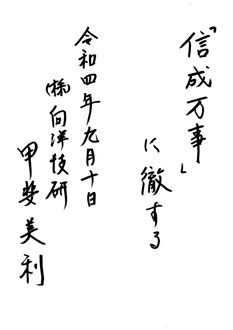 「信成万事」
に徹する
令和四年九月十日
(株)向洋技研
甲斐美利